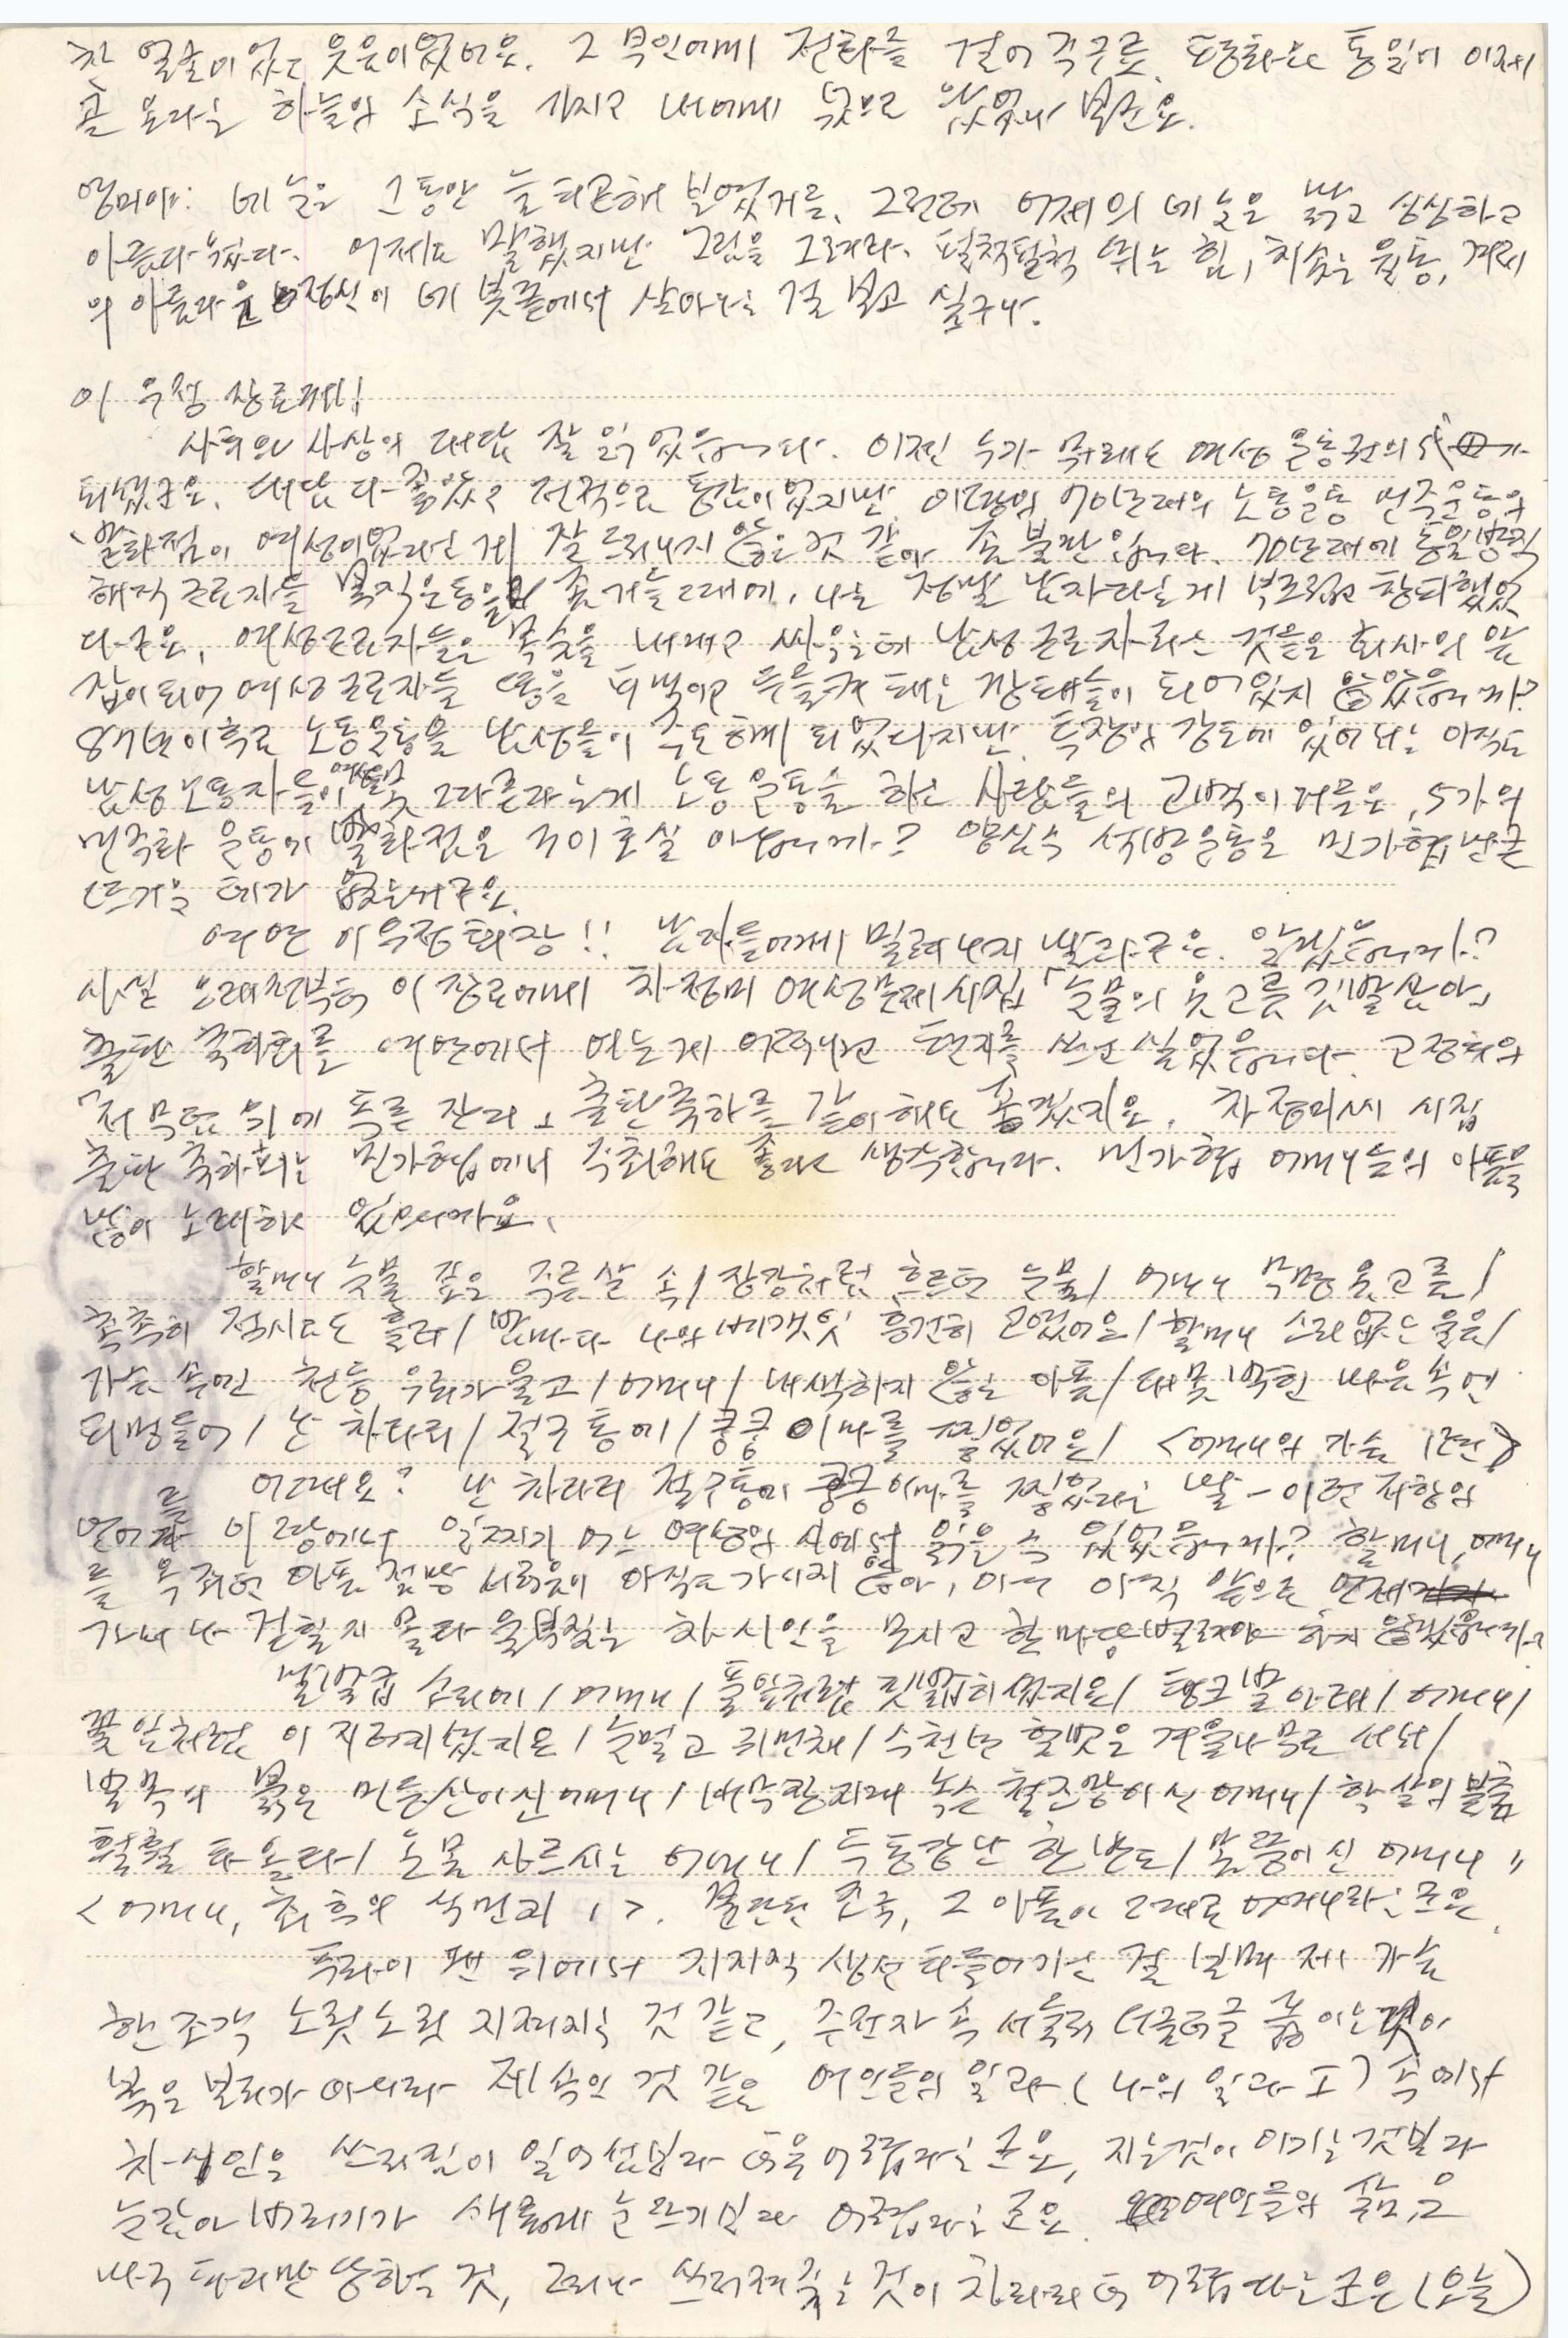 참 얼굴이 있고 웃음이 있어요. 그 부인에게 전화를 걸어 주구료. 평화는 통일이 이제
곧 온다는 하늘의 소식을 가지고 너에게 왔나 보군요.
영미야! 네 눈은 그동안 늘 피곤해 보였거든. 그런데 어제의 네 눈은 맑고 싱싱하고
아름다웠다. 어제도 말했지만 그림을 그려라. 펄척펄척 뛰는 힘, 치솟는 율동, 겨레
의 아름다운 정신이 네 붓끝에서 살아나는 걸 보고 싶구나.
이 우정 장로께!
사회와 사상의 대담 잘 읽었습니다. 이젠 누가 뭐래도 여성 운동권의
되셨군요. 대담 다 좋았고 전적으로 동감이었지만 이땅의 70년대의 노동운동 민주운동의
발화점이 여성이었다는 게 잘 드러나지 않은 것 같아 좀 불만입니다. 70년대에 동일방직
해직 근로자들 복직운동을 좀 거들 그때에, 나는 정말 남자라는게 부끄럽고 창피했었
다구요. 여성근로자들은 목숨을 내대고 싸우는데 남성 근로자라는 것들은 회사의 앞
잡이 되어 여성 근로자들 똥을 퍼먹이고 두들겨 패는 깡패들이 되어있지 않았습니까?
87년 이후로 노동운동을 남성들이 주도하게 되었다지만 투쟁의 강도에 있어서는 아직도
남성노동자들이 여성을 못 따른다는게 노동운동을 하는 사람들의 고백이거든요. 5가의
민주화 운동의 발화점은 구이호실 아닙니까? 양심수 석방운동은 민가협만큼
뜨거운 데가 없는거구요.
여연 이우정 회장!! 남자들에게 밀려나지 말라구요. 알겠습니까?
사실 오래전부터 이 장로에게 차정미 여성문제시집 「눈물의 옷고름 깃발삼아」
출판 축하회를 여연에서 여는게 어떠냐고 편지를 쓰고 싶었습니다. 고정희의
「저 무덤 위에 푸른 잔디」 출판축하를 같이 해도 좋겠지요. 차정미씨 시집
출판 축하회는 민가협에서 주최해도 좋다고 생각합니다. 민가협 어머니들의 아픔을
많이 노래하고 있으니까요.
할머니 눈물 깊은 주름살 속/장강처럼 흐르던 눈물/어머니 무명 옷고름/
촉촉히 적시고도 흘러/밤마다 나의 베갯잇 흥건히 고였어요/할머니 소리없는 울음/
가슴 속엔 천둥 우뢰가 울고/어머니/내색하지 않는 아픔/대못 박힌 마음 속엔
피멍들어/난 차라리/절구통에/쿵쿵 이마를 찧었어요/ <어머니의 가슴 1편>
어때요? 난 차라리 절구통에 쿵쿵 이마를 찧었다는 말 - 이런 저항의
언어를 이 땅에서 일찌기 어느 여성의 시에서 읽을 수 있었습니까? 할머니, 어머니
를 옥죄던 아픔 절망 서러움이 아직도 가시지 않아, 아니 아직 앞으로 언제
가서나 걷힐지 몰라 울부짖는 차 시인을 모시고 한마당 벌려야 하지 않겠습니까?
말발굽 소리에/어머니/풀잎처럼 짓밟히셨지요/탱크 발 아래/어머니/
꽃잎처럼 이지러지셨지요/눈멀고 귀먼채/수천년 헐벗은 겨울나무로 서서/
반목의 붉은 민둥산이신 어머니/비무장지대 녹슨 철조망이신 어머니/학살의 불춤
훨훨 타올라/눈물 사르시는 어머니/두동강난 한반도/몸뚱이신 어머니"
<어머니, 최후의 식민지 1>. 분단된 조국, 그 아픔이 그대로 어머니라는군요.
후라이 팬 위에서 지지직 생선 타들어가는 걸 볼때 제 가슴
한조각 노릿노릿 지져지는 것 같고, 주전자 속 서늘히 더글더글 끓이는것이
볶은 보리가 아니라 제속인 것 같은 여인들의 일과 (나의 일과 I) 속에서
차시인은 쓰러짐이 일어섬보다 더욱 어렵다는군요. 지는것이 이기는것보다
눈감아 버리기가 새롭게 눈뜨기보다 어렵다는군요. 여인들의 삶은
나구 타리만 당하는 것, 그러나 쓰러져 있는 것이 차라리 더 어렵다는군요 (오늘)